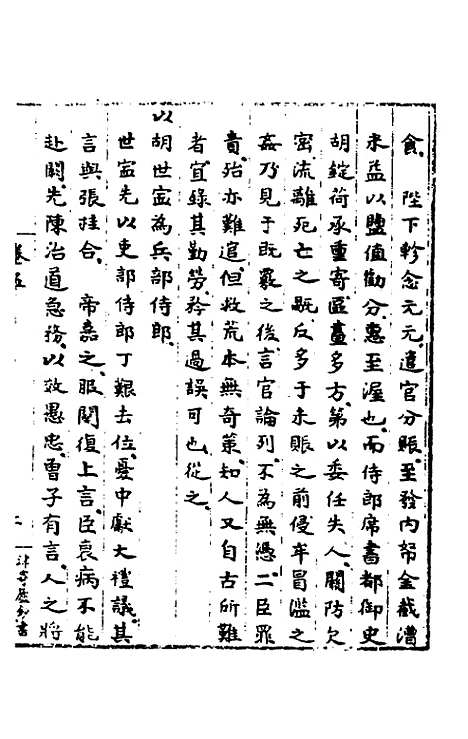 食陛下軫念元元遣官分賑至發内帑金截漕
米益以鹽值勸分惠至渥也而侍郎席書都御史
胡錠荷承重寄區畫多方第以委任失人關防欠
密流離死亡之既反多于未賑之前侵牟冒濫之
姦乃見于既覈之後言官論列不為無憑二臣罪
責殆亦難逭但救荒本無奇策知人又自古所難
者宜錄其勤勞矜其過誤可也從之
以胡世寍為兵部侍郎
世寍先以吏部侍郎丁艱去位憂中獻大禮議其
言與張桂合帝嘉之服闋復上言臣衰病不能
赴闕先陳治道急務以效愚忠曽子有言人之將
卷五